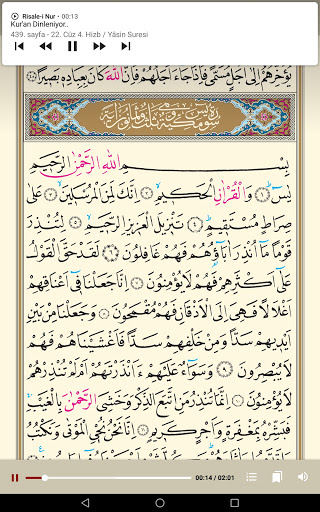 Risale-i Nur • 00:13
Kur'an Dinleniyor..
439. sayfa - 22. Cüz 4. Hizb / Yâsin Suresi
يُؤَخِّرُهُمْ إِلَىٰ أَجَلٍ مُسَمًّى فَإِذَا جَاءَ أَجَلُهُمْ فَإِنَّ اللّٰهَ كَانَ بِعِبَادِهِ بَصِيرًا ﴿٤٥﴾
بِسْمِ اللّٰهِ الرَّحْمٰنِ الرَّحِيمِ
يٰسٓ ﴿١﴾ وَالْقُرْاٰنِ الْحَكِيمِ ﴿٢﴾ اِنَّكَ لَمِنَ الْمُرْسَلِينَ ﴿٣﴾ عَلٰى
صِرَاطٍ مُسْتَقِيمٍ ﴿٤﴾ تَنْزِيلَ الْعَزِيزِ الرَّحِيمِ ﴿٥﴾ لِتُنْذِرَ
قَوْمًا مَا اُنْذِرَ اٰبَاؤُهُمْ فَهُمْ غَافِلُونَ ﴿٦﴾ لَقَدْ حَقَّ الْقَوْلُ
عَلٰى اَكْثَرِهِمْ فَهُمْ لَا يُؤْمِنُونَ ﴿٧﴾ اِنَّا جَعَلْنَا فِى اَعْنَاقِهِمْ
اَغْلَالًا فَهِىَ اِلَى الْاَذْقَانِ فَهُمْ مُقْمَحُونَ ﴿٨﴾ وَجَعَلْنَا مِنْ بَيْنِ
اَيْدِيهِمْ سَدًّا وَمِنْ خَلْفِهِمْ سَدًّا فَاَغْشَيْنَاهُمْ فَهُمْ
لَا يُبْصِرُونَ ﴿٩﴾ وَسَوَاءٌ عَلَيْهِمْ ءَاَنْذَرْتَهُمْ اَمْ لَمْ تُنْذِرْهُمْ
لَا يُؤْمِنُونَ ﴿١٠﴾ اِنَّمَا تُنْذِرُ مَنِ اتَّبَعَ الذِّكْرَ وَخَشِىَ الرَّحْمٰنَ بِالْغَيْبِ
فَبَشِّرْهُ بِمَغْفِرَةٍ وَاَجْرٍ كَرِيمٍ ﴿١١﴾ اِنَّا نَحْنُ نُحْيِى الْمَوْتٰى وَنَكْتُبُ
00:14 / 02:01